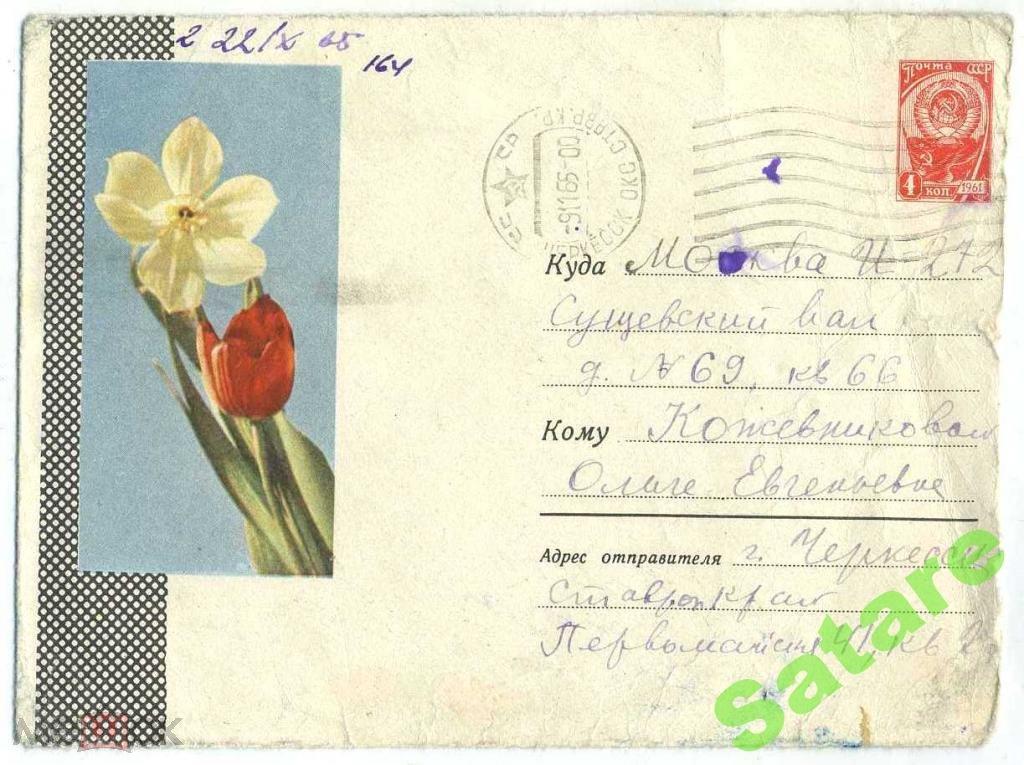 2 22/X 65
164
Почта СССР
4 КОП. 1961
СССР
-91165-00
ЧЕРКЕССК ОКС СТАВР.КР.
Куда Москва И-272
Сущевский вал
д. № 69, кв 66
Кому Кожевниковой
Ольге Евгеньевне
Адрес отправителя г. Черкесск
Ставроп край
Первомайская 41, кв 2
Satare